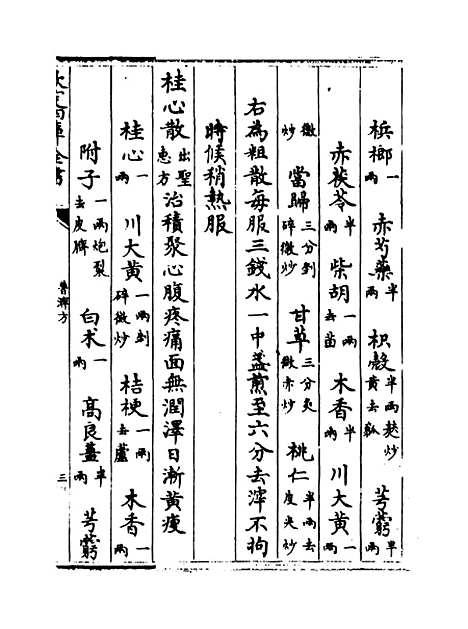 檳榔一兩 赤芍藥半兩 枳殼半兩麸炒黄去瓤 芎藭半兩
赤茯苓半兩 柴胡一兩去苗 木香半兩 川大黄一兩
微炒 當歸三分剉碎微炒 甘草三分炙微赤炒 桃仁半兩去皮尖炒
右為粗散每服三錢水一中盞煎至六分去滓不拘
時候稍熱服
桂心散出聖惠方治積聚心腹疼痛面無潤澤日漸黄瘦
桂心一兩 川大黄一兩剉碎微炒 桔梗一兩去蘆 木香一兩
附子一兩炮裂去皮臍 白术一兩 髙良薑半兩 芎藭
普濟方
三